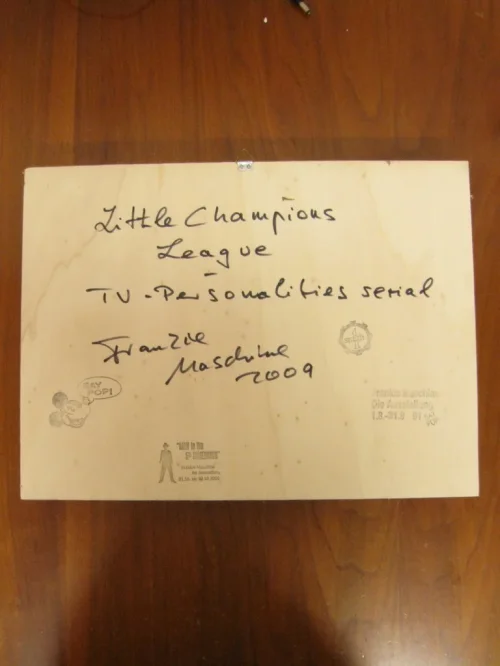 Little Champions
League
TV-Personalities serial
Franzie
Maschine
2009
SAY
POP!
Die Ausstellung